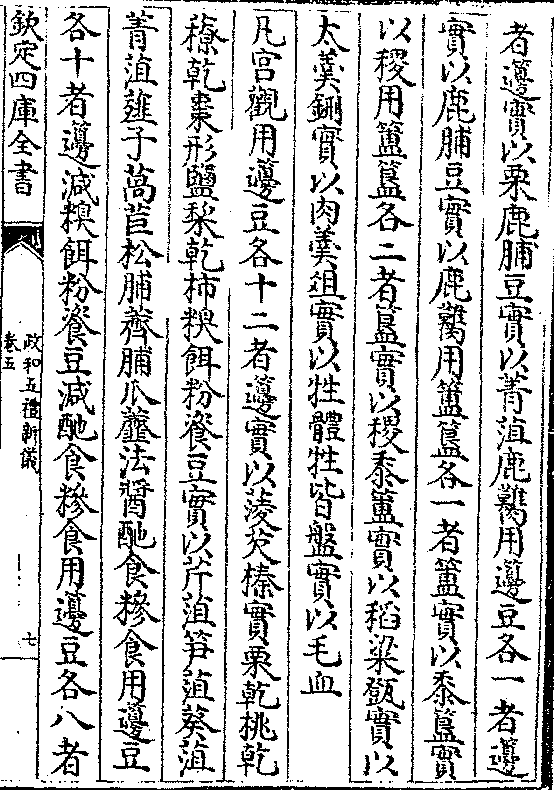 者籩實以栗鹿脯豆實以菁菹鹿臡用籩豆各一者籩
實以鹿脯豆實以鹿臡用簠簋各一者簠實以黍簋實
以稷用簠簋各二者簋實以稷黍簠實以稻粱㽅實以
太羮鉶實以肉羮俎實以牲體牲皆盤實以毛血
凡宮觀用籩豆各十二者籩實以菱芡榛實栗乾桃乾
䕩乾棗形鹽棃乾柿糗餌粉餈豆實以芹菹笋菹葵菹
菁菹薤子萵苣松脯薺脯瓜虀法醬酏食糝食用籩豆
各十者籩減糗餌粉餈豆減酏食糝食用籩豆各八者
欽定四庫全書
政和五禮新儀
卷五
七